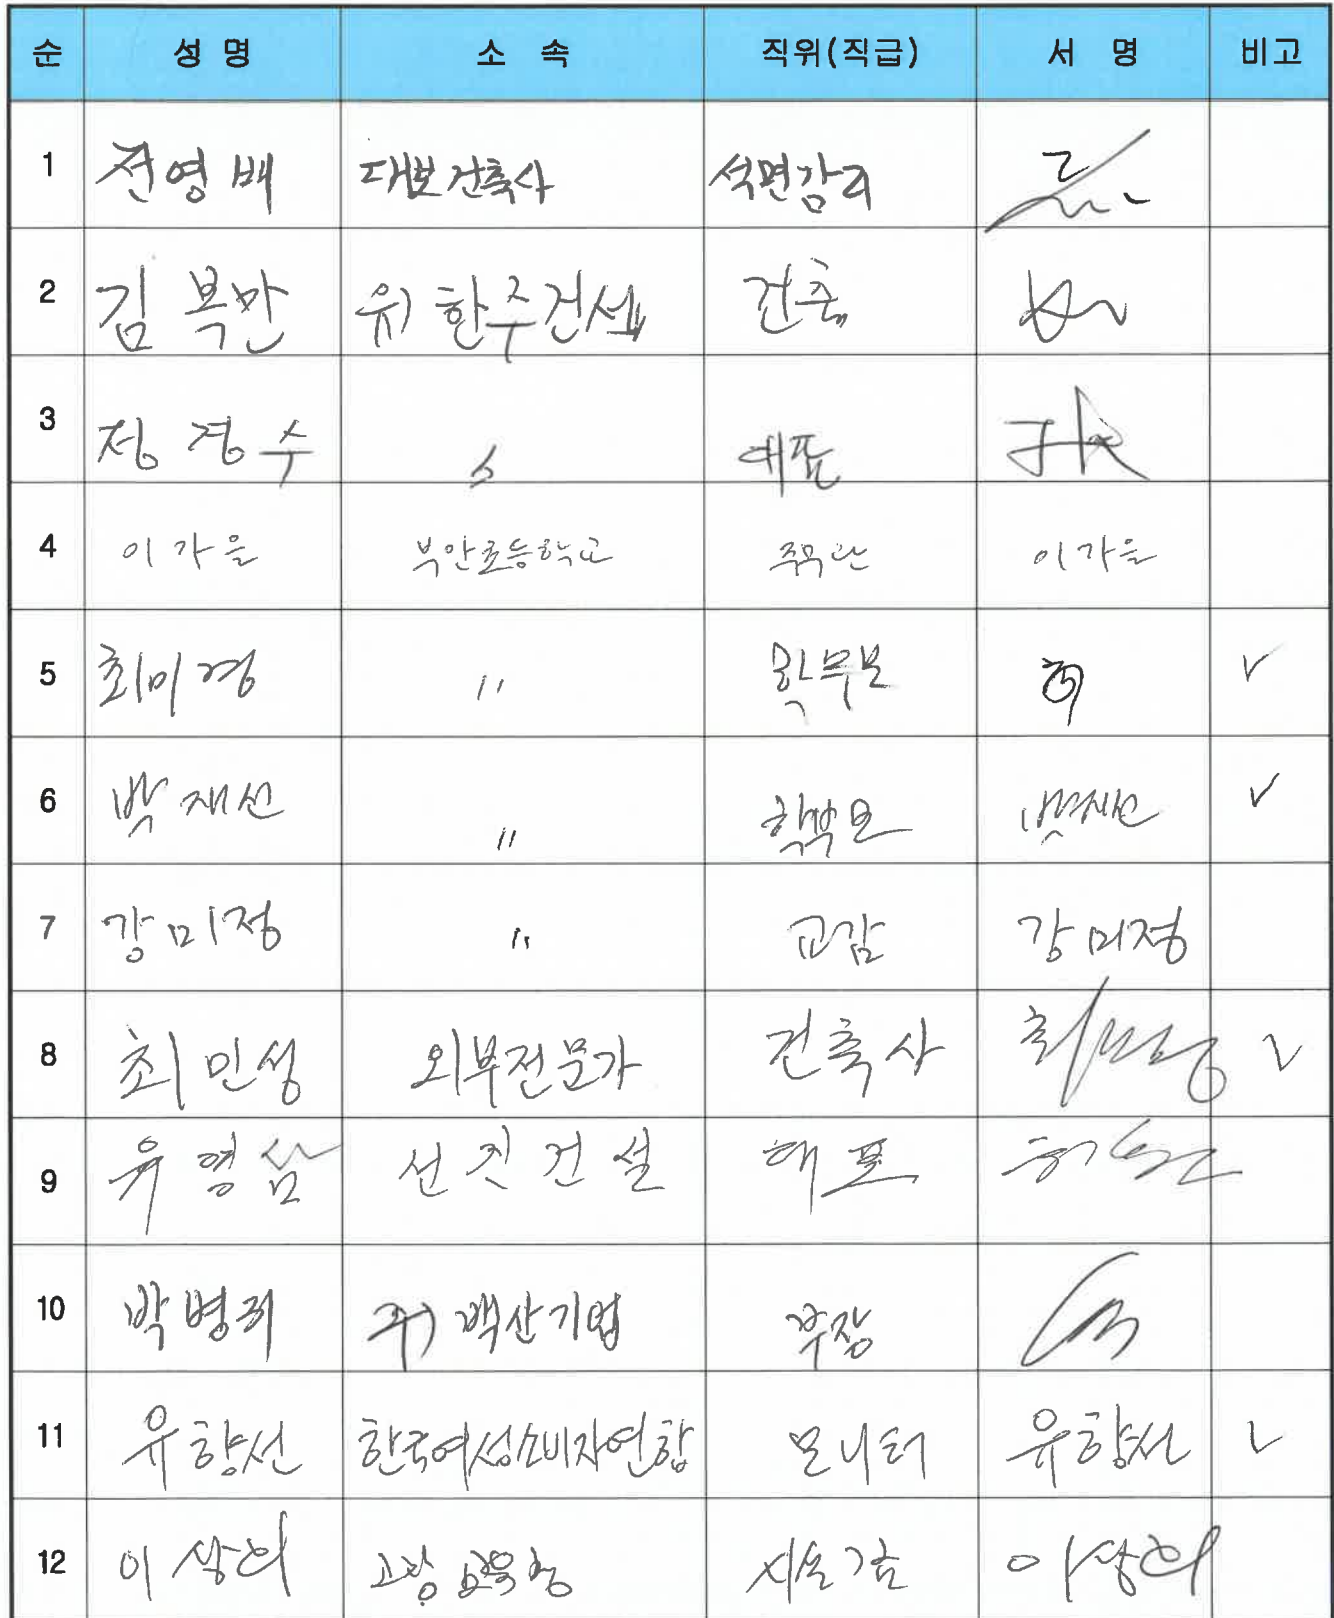 순 성 명 소 속 직위(직급) 서 명 비고
1 전영배 대보건축사 석면감리
2 김복만 유) 한주건설 건축
3 정경수 〃 대표
4 이가을 부안초등학교 주무관 이가을
5 최미경 〃 학부모 ✓
6 박재선 〃 학부모 박재선 ✓
7 강미정 〃 교감 강미정
8 최민성 외부전문가 건축사 최민성 ✓
9 유영삼 선진건설 대표
10 박병귀 주) 백산기업 부장
11 유향선 한국여성소비자연합 모니터 유향선 ✓
12 이상희 고창교육청 시설감 이상희